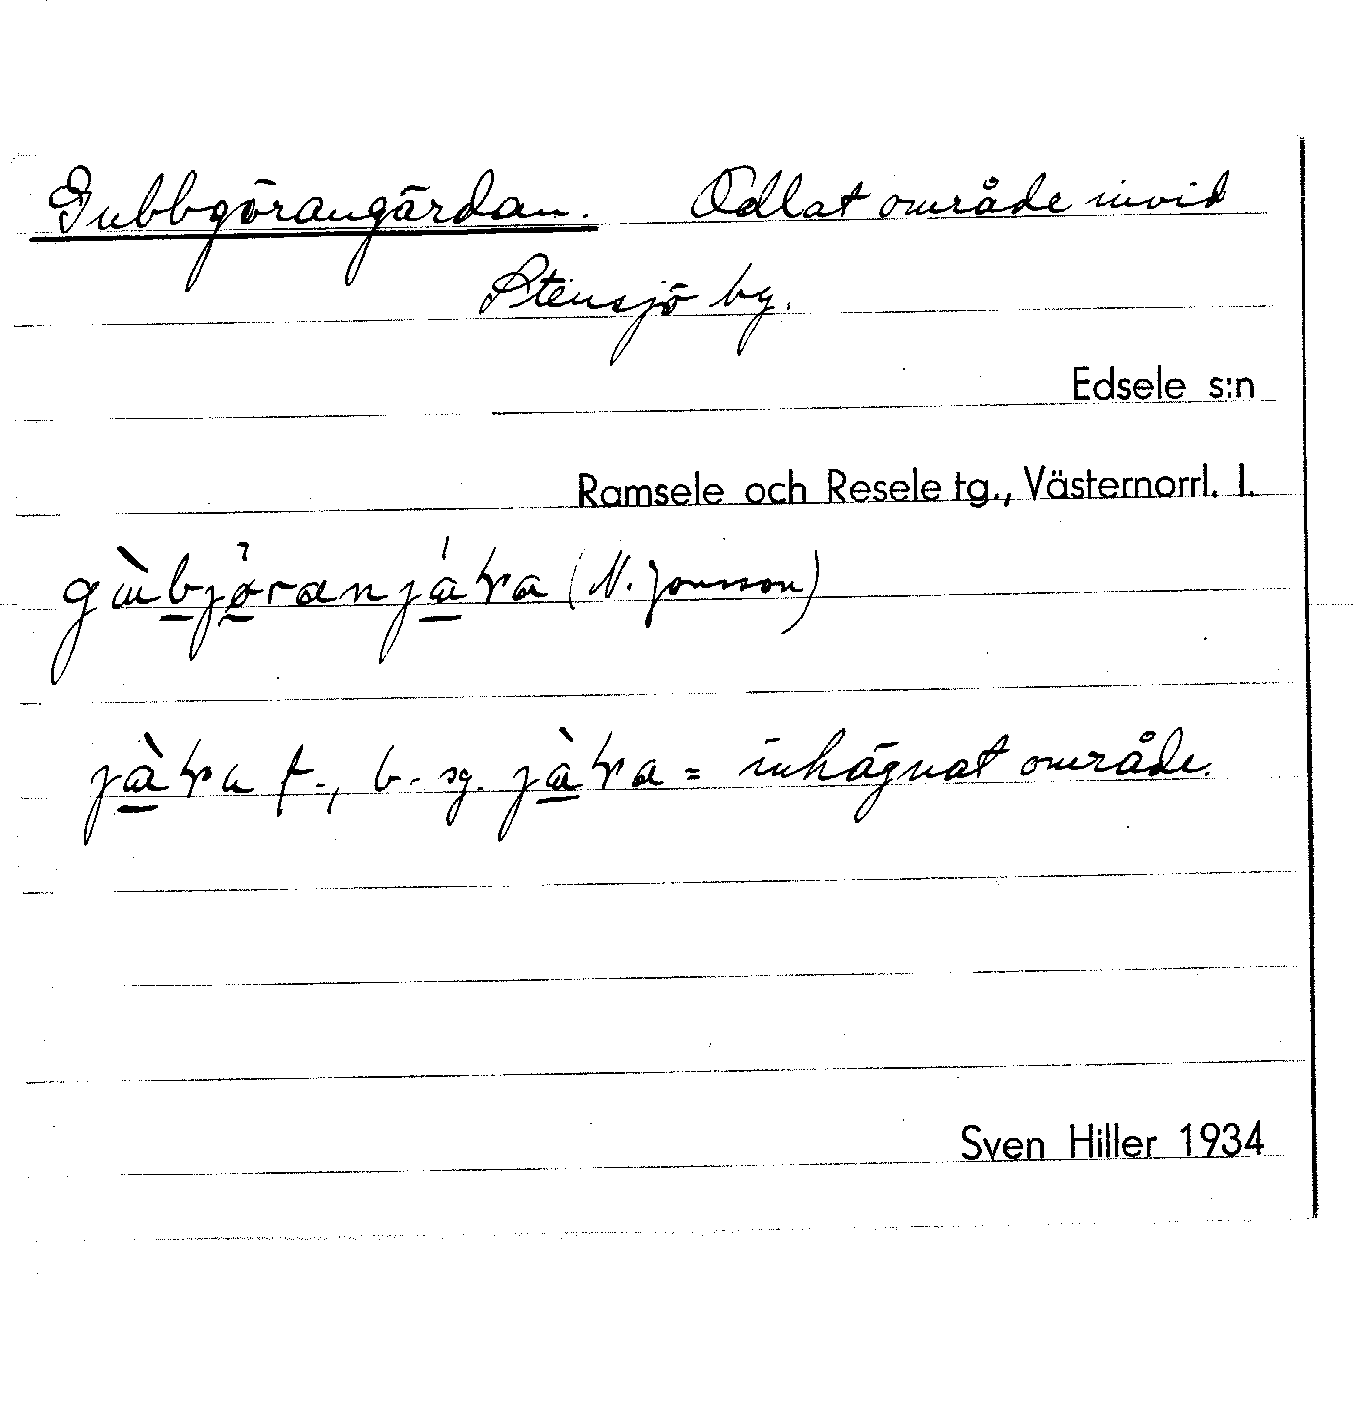 Gubbgörangärdan. Odlat område invid
Stensjö by.
Edsele s:n
Ramsele och Resele tg., Västernorrl. l.
(N. Jonsson)
f., b. sg. = inhägnat område.
Sven Hiller 1934